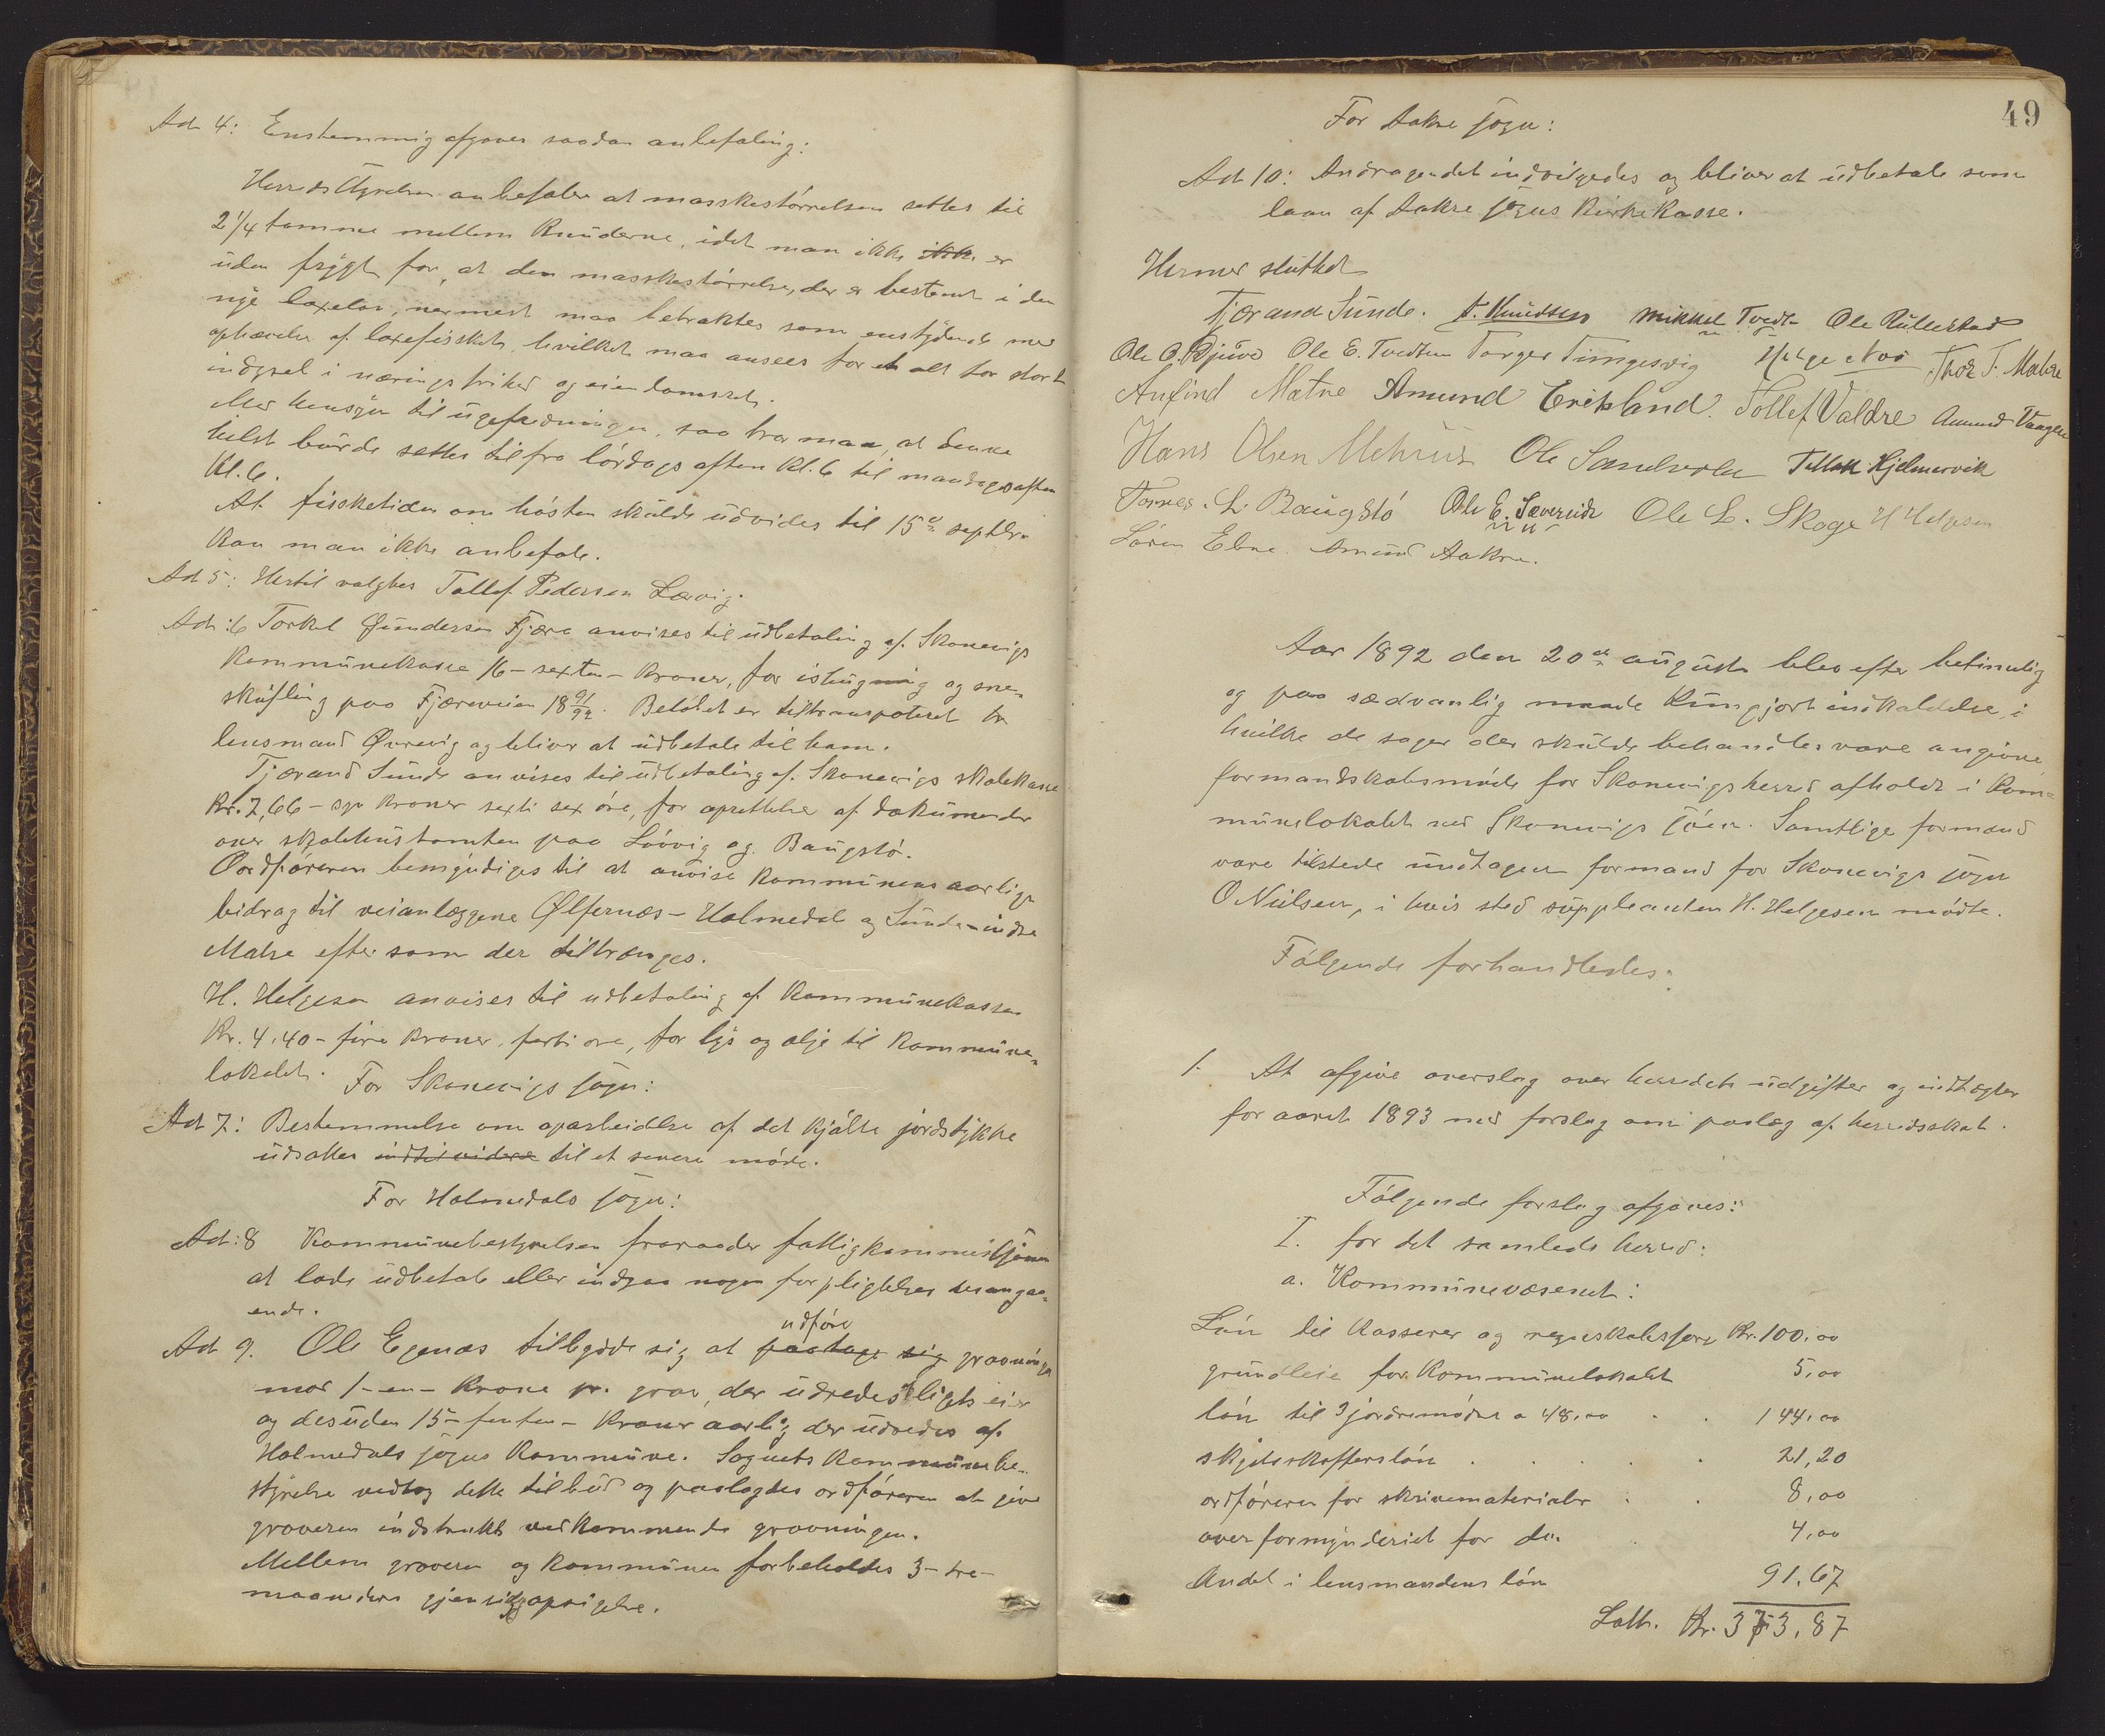 Ad 4: Enstemmig afgaves saadan anbefaling:
Herredsstyrelsen anbefaler at masskestørrelsen settes til
2 1/4 tomme mellem Knuderne, idet man ikke ikke er
uden frygt for, at den masskestørrelse, der er bestemt i den
nye laxelov, nermest maa betraktes som enstydende med
ophævelse af laxefisket, hvilket maa ansees for et alt for stort
indgreb i næringsfrihed og eiendomsret.
Med hensyn til ugefredningen, saa tror man, at denne
helst burde settes til fra lørdags aften Kl. 6 til mandags aften
Kl. 6.
At fissketiden om høsten skulde udvides til 15de septbr.
kan man ikke anbefale.
Ad 5: Hertil valgtes Tollef Pedersen Lervig.
Ad: 6 Torkel Gundersen Fjære anvises til udbetaling af Skonevigs
Kommunekasse 16 - sexten - Kroner, for ishugning og sne-
skufling paa Fjæreveien 18 91/92. Beløbet er tiltransporteret
lensmand Øvrevig og bliver at udbetale til ham.
Tjærand Sunde anvises til udbetaling af Skonevigs skolekasse
Kr. 7,66 - syv Kroner sexti sex øre, for oprettelse af dokumender
over skolehustomten paa Løvvig og Baugstø.
Oordføreren bemyndiges til at anvise Kommunens aarlige
bidrag til veianlæggene Ølfernæs - Holmedal og Sunde - indre
Matre efter som der tiltrænges.
H. Helgesen anvises til udbetaling af Kommunekassen
Kr. 4,40 - fire Kroner, førti øre, for lys og olje til Kommune-
lokalet.
For Skonevigs sogn:
Ad 7: Bestemmelse om oparbeidelse af det kjøbte jordstykke
udsattes indtil videre til et senere møde.
For Holmedals sogn:
Ad: 8 Kommunebestyrelsen fraraader fattigkommisjonen
at lade udbetale eller indgaa nogen forpligtelser desangaa-
ende.
udføre
Ad 9. Ole Egenæs tilbyde sig at paatage sig gravningen
mod 1 - en - Krone pr. grav, der udredes af ligets eier
og desuden 15 - femten - Kroner aarlig der udredes af
Holmedals sogns Kommune. Sognets Kommunebe-
styrelse vedtog dette tilbud og paalagdes ordføreren at give
graveren indstrukt vedkommende gravningen.
Mellem graveren og Kommunen forbeholdes 3 - tre -
maaneders gjensidig opsigelse.
49
For Aakre sogn:
Ad 10: Andragendet indvilgedes og bliver at udbetale som
laan af Aakre sogns Kirkekasse.
Hermed sluttet
Tjærand Sunde. A. Knudsen Mikkel Tvedt Ole Rullestad
Ole O. Djuve Ole E. Tvedten Torger Tungesvig Helge Næs Thor T. Matre
Anfind Matre Amund Eriksland. Tollef Valdre Amund Vaagen
Hans Olsen Mehuus Ole Sandvola Tollak Hjelmervik
Tomes. L. Baugstø Ole E. Sævereide Ole L. Skoge H Helgesen
Søren Ebne. Amund Aakre.
Aar 1892 den 20de august blev efter betimelig
og paa sædvanlig maade Kungjort indkaldelse, i
hvilke de sager der skulde behandles vare angivne
formandskabsmøde for Skonevigs herred afholdt i Kom-
munelokalet ved Skonevigs søen. Samtlige formænd
vare tilstede undtagen formand for Skonevigs sogn
O Nielsen, i hvis sted suppleanten H. Helgesen mødte.
Følgende forhandledes:
1. At afgive overslag over herredets udgifter og indtægter
for aaret 1893 med forslag om paalæg af herredsskat.
Følgende forslag afgaves:
I. for det samlede herred:
a. Kommunevæsenet:
Løn til Kasserer og regnskabsfører Kr. 100,00
grundleie for Kommunelokalet 5,00
løn til 3 jordemødre a 48,00 . . 144,00
skydsskafferløn . . . . . 21,20
ordføreren for skrivematerialer . . 8,00
overformynderiet for do. . 4,00
Andel i lensmandens løn 91,67
Latr. Kr. 373,87